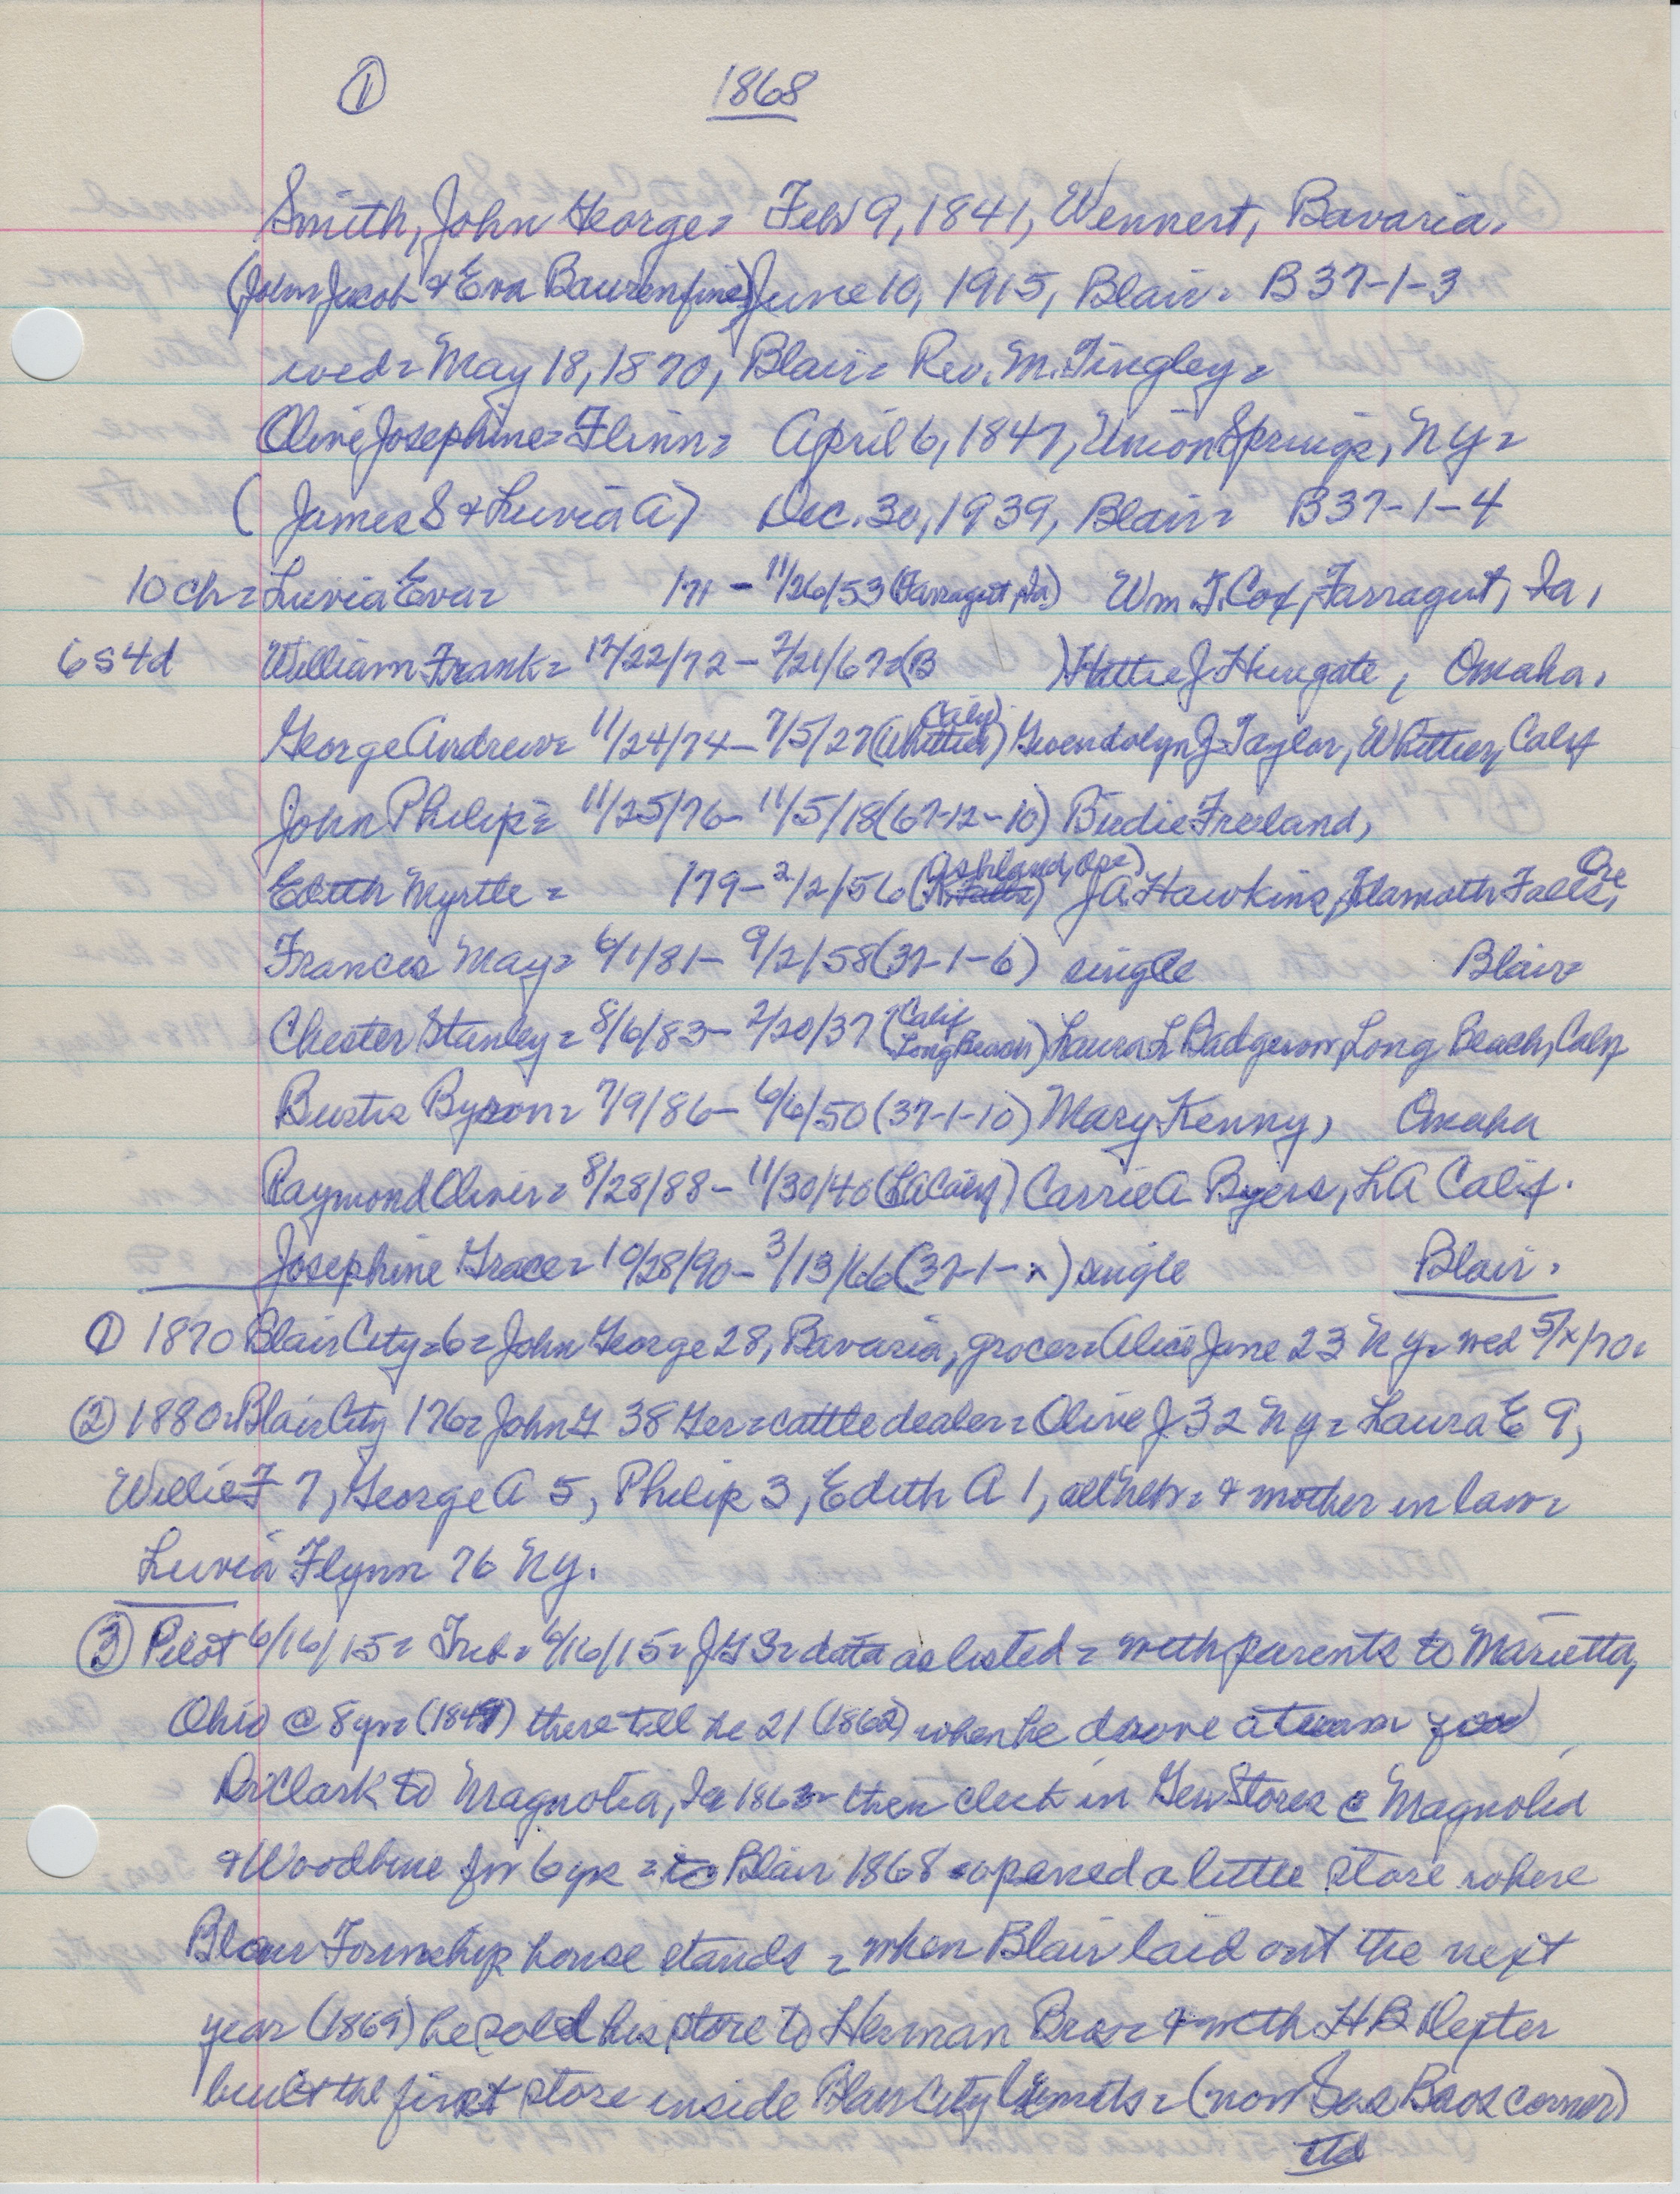 ① 1868
Smith, John George = Feb 9, 1841, Wennert, Bavaria.
(John Jacob & Eva Baurenfine) June 10, 1915, Blair = B37-1-3
wed = May 18, 1870, Blair = Rev. M. Tingley =
Olive Josephine = Flinn = April 6, 1847, Union Springs, NY =
(James S & Luvia A) Dec. 30, 1939, Blair = B37-1-4
10 ch = Luvia Eva = /71 - 11/26/53 (Farragut, Ia) Wm. T. Cox, Farragut, Ia,
6s4d William Frank = 12/22/72 - 2/21/67 = (B ) Hattie J Hungate, Omaha.
George Andrew = 11/24/74 - 7/5/27 (Whittier Calif) Gwendolyn J Taylor, Whittier, Calif
John Philip = 11/25/76 - 11/5/18 (67-12-10) Birdie Freeland,
Edith Myrtle = /79 - 2/2/56 (K. Falls Ashland, Ore) J.A. Hawkins, Klamath Falls, Ore
Frances May = 6/1/81 - 9/2/58 (37-1-6) single Blair =
Chester Stanley = 8/6/83 - 2/20/37 (Calif Long Beach) Laura L Badgerow, Long Beach, Calif
Bustis Byron = 7/9/86 - 6/6/50 (37-1-10) Mary Kenny, Omaha
Raymond Oliver = 8/28/88 - 11/30/40 (LA Calif) Carrie A Byers, LA Calif.
Josephine Grace = 10/28/90 - 3/13/66 (37-1-x) single Blair.
① 1870 Blair City = 6 = John George 28, Bavaria, grocer = Alice Jane 23 NY = wed 5/x/70 =
② 1880 = Blair City 176 = John G 38 Ger = cattle dealer = Olive J 32 NY = Laura E 9,
Willie F 7, George A 5, Philip 3, Edith A 1, all Neb = & mother in law =
Luvia Flynn 76 NY.
③ Pilot 6/16/15 = Trib = 6/16/15 = JGS = data as listed = with parents to Marietta,
Ohio @ 8 yrs (1849) there till he 21 (1862) when he drove a team for
Dr Clark to Magnolia, Ia 1862 = then clerk in Gen Stores @ Magnolia
& Woodbine for 6 yrs = to Blair 1868 = opened a little store where
Blair Township house stands = when Blair laid out the next
year (1869) he sold his store to Herman Bros = & with HB Dexter
built the first store inside Blair City limits = (now Sas Bros corner)